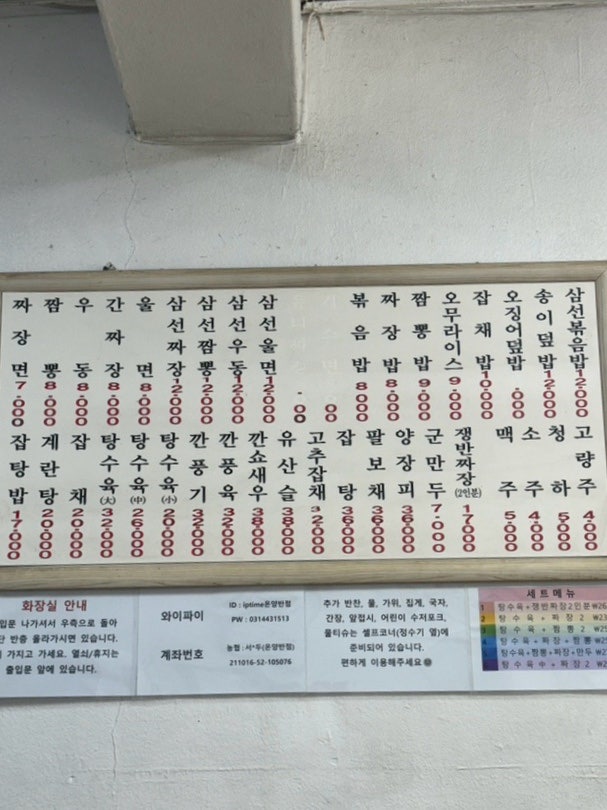 짜장면 7.000
짬뽕 8.000
우동 8.000
간짜장 8.000
울면 8.000
삼선짜장 12.000
삼선짬뽕 12.000
삼선우동 12.000
삼선울면 12.000
볶음밥 8000
짜장밥 8.000
짬뽕밥 9.000
오무라이스 9.000
잡채밥 10.000
오징어덮밥 .000
송이덮밥 12.000
삼선볶음밥 12.000
잡탕밥 17.000
계란탕 20.000
잡채 20.000
탕수육(大) 32.000
탕수육(中) 26.000
탕수육(小) 20.000
깐풍기 32.000
깐풍육 32.000
깐쇼새우 38.000
유산슬 38.000
고추잡채 32.000
잡탕 36.000
팔보채 36.000
양장피 36.000
군만두 7.000
쟁반짜장(2인분) 17.000
맥주 5.000
소주 4.000
청하 5.000
고량주
화장실 안내
입문 나가셔서 우측으로 돌아
단 반층 올라가시면 있습니다.
가지고 가세요. 열쇠/휴지는
출입문 앞에 있습니다.
와이파이
ID : iptime온양반점
PW : 0314431513
계좌번호
농협 : 서*두(온양반점)
211016-52-105076
추가 반찬, 물, 가위, 집게, 국자,
간장, 앞접시, 어린이 수저포크,
물티슈는 셀프코너(정수기 옆)에
준비되어 있습니다.
편하게 이용해주세요
세트메뉴
1 탕수육+쟁반짜장2인분 ₩26
2 탕수육+짜장2 ₩23
3 탕수육+짬뽕2 ₩2
4 탕수육+짜장+짬뽕 ₩2
탕수육+짬뽕+짜장+만두 ₩2
탕수육수+짜장2